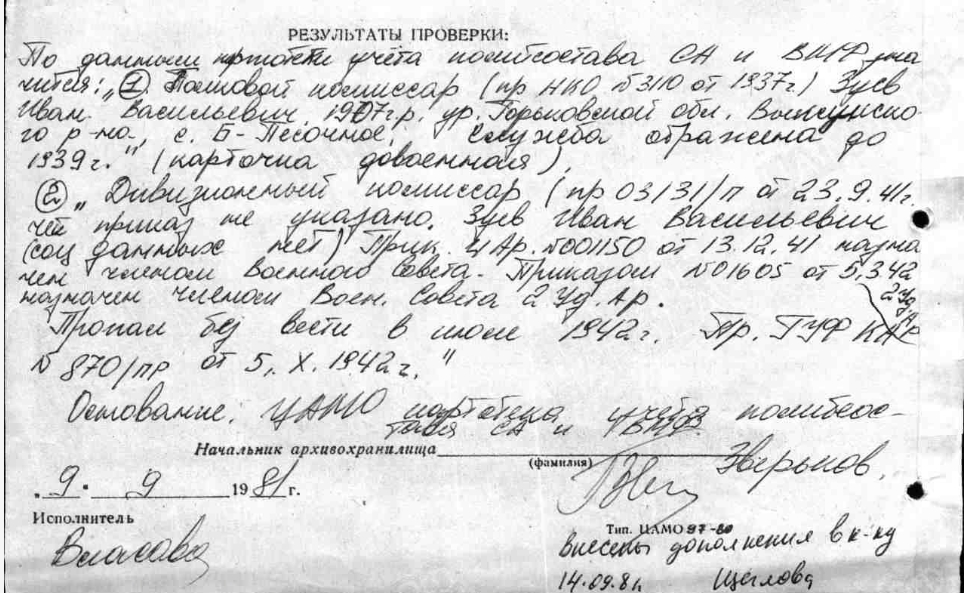 РЕЗУЛЬТАТЫ ПРОВЕРКИ:
По данным картотеки учёта политсостава СА и ВМФ зна
чится: „① Полковой комиссар (пр НКО №3110 от 1937г.) Зуев
Иван Васильевич, 1907г.р. ур. Горьковской обл. Выксунско-
го р-на, с. Б-Песочное, служба отражена до
1939г.", (карточка довоенная)
② „Дивизионный комиссар (пр 03/31/п от 23.9.41г.
чей приказ не указано. Зуев Иван Васильевич
(соц данных нет) Прик. 4 Ар. №001150 от 13.12.41 назна
чен членом Военного Совета. Приказом №01605 от 5.3.42
назначен членом Воен. Совета 2 Уд. Ар. 2 Уд
Пропал без вести в июле 1942г. Пр. ГУФ КА
№ 870/пр от 5. X. 1942г."
Основание: ЦАМО картотека учёта политсос-
тава СА и ВМФ
Начальник архивохранилища
(фамилия)
Зверьков.
„9" 9 1981 г.
Исполнитель
Тип. ЦАМО 97-80
Власова
Внесены дополнения в к-ку
14.09.81 Щеглова